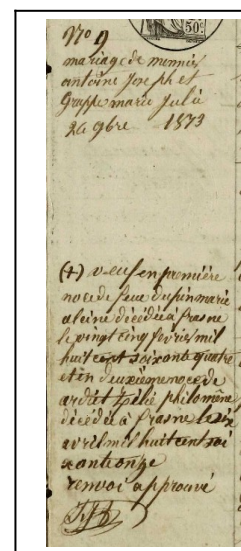 50c
No 9
mariage de monnier
antoine Joseph et
Grappe marie Julie
24 9bre 1873
(+) veuf en première
noce de feue dupin marie
aleine décédée à frasne
le vingt cinq fevrier mil
huit cent soixante quatre
et en deuxième noce de
ardiet zélé philomène
décédée à frasne le dix
avril mil huit cent soi
xante onze
renvoi approuvé